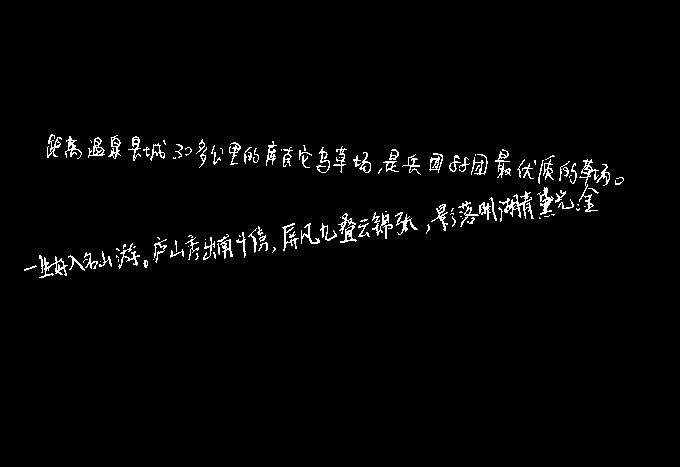 距离温泉县城30多公里的库克它乌草场,是兵团88团最优质的草场。
一生好入名山游。庐山秀出南斗傍,屏风九叠云锦张,影落明湖青黛光金